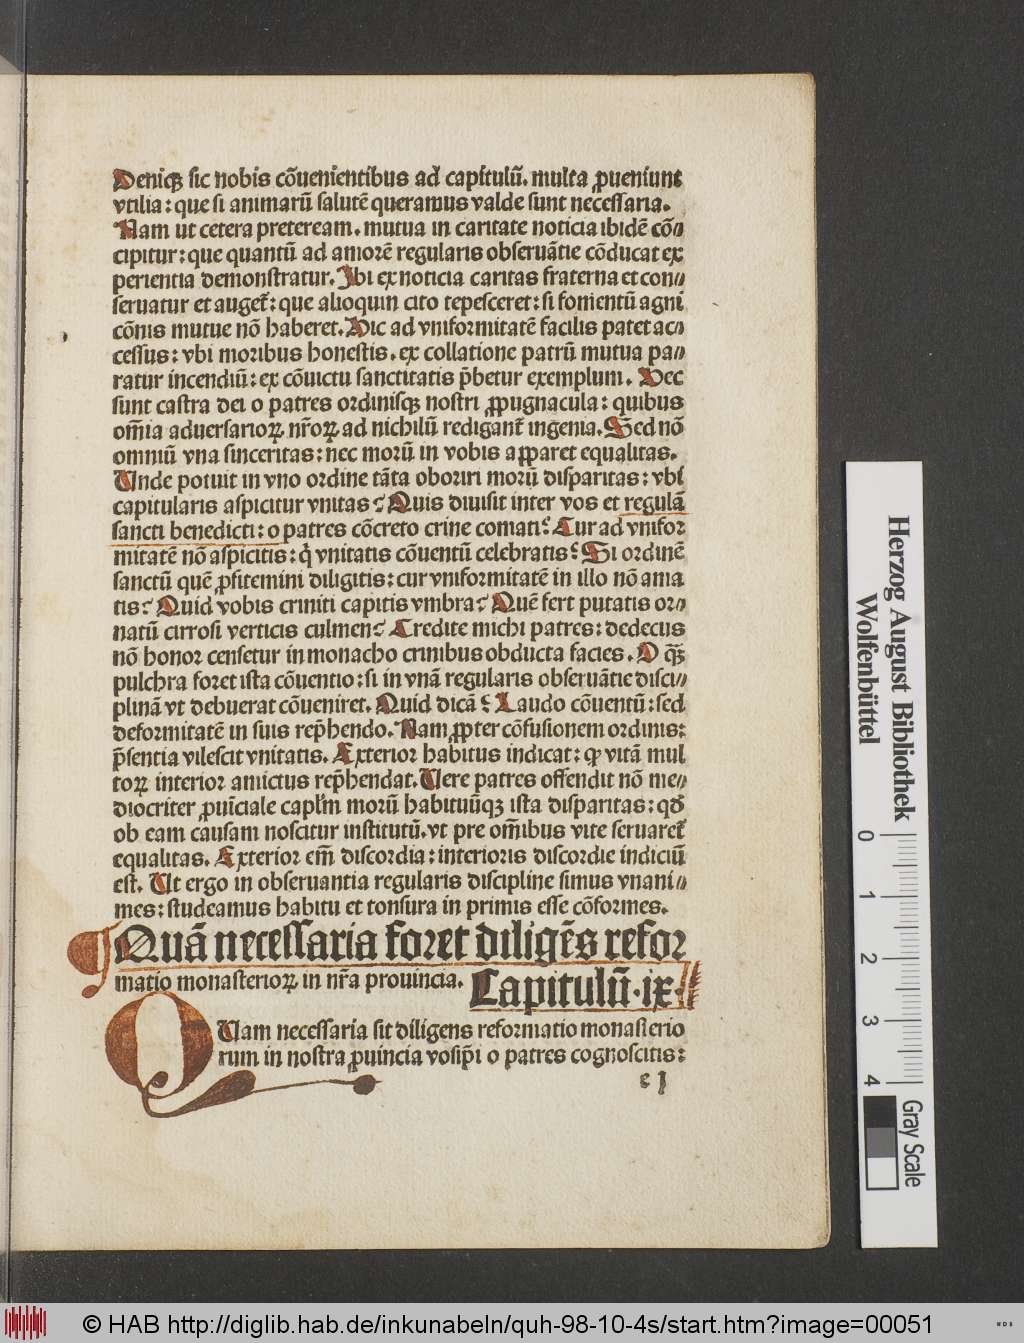 Deniqꝫ sic nobis cõuenientibus ad capitulũ. multa ꝓueniunt
vtilia: que si animarũ salutẽ queramus valde sunt necessaria.
Nam ut cetera preteream. mutua in caritate noticia ibidẽ cõ⸗
cipitur: que quantũ ad amorẽ regularis obseruãtie cõducat ex
perientia demonstratur. Ibi ex noticia caritas fraterna et con⸗
seruatur et auget᷑: que alioquin cito tepesceret: si fomentũ agni
cõnis mutue nõ haberet. Hic ad vniformitatẽ facilis patet ac⸗
cessus: vbi moribus honestis. ex collatione patrũ mutua pa⸗
ratur incendiũ: ex cõuictu sanctitatis p̃betur exemplum. Hec
sunt castra dei o patres ordinisqꝫ nostri ꝓpugnacula: quibus
om̃ia aduersarioꝝ nr̃oꝝ ad nichilũ redigant᷑ ingenia. Sed nõ
omniũ vna sinceritas: nec morũ in vobis apparet equalitas.
Unde potuit in vno ordine tãta oboriri morũ disparitas: vbi
capitularis aspicitur vnitas? Quis diuisit inter vos et regulã
sancti benedicti: o patres cõcreto crine comati? Cur ad vnifor
mitatẽ nõ aspicitis: q̇ vnitatis cõuentũ celebratis? Si ordinẽ
sanctũ quẽ ꝓfitemini diligitis: cur vniformitatẽ in illo nõ ama
tis? Quid vobis criniti capitis vmbra? Quẽ fert putatis or⸗
natũ cirrosi verticis culmen? Credite michi patres: dedecus
nõ honor censetur in monacho crinibus obducta facies. O q̃ꝫ
pulchra foret ista cõuentio: si in vnã regularis obseruãtie disci⸗
plinã vt debuerat cõueniret. Quid dicã? Laudo cõuentũ: sed
deformitatẽ in suis rep̃hendo. Nam ꝓpter cõfusionem ordinis:
p̃sentia vilescit vnitatis. Exterior habitus indicat: ꝙ vitã mul
toꝝ interior amictus rep̃hendat. Uere patres offendit nõ me⸗
diocriter ꝓuĩciale caplm̃ morũ habituũqꝫ ista disparitas: qđ
ob eam causam noscitur institutũ. vt pre om̃ibus vite seruaret᷑
equalitas. Exterior em̃ discordia: interioris discordie indiciũ
est. Ut ergo in obseruantia regularis discipline simus vnani⸗
mes: studeamus habitu et tonsura in primis esse cõformes.
¶ Quã necessaria foret diligẽs refor
matio monasterioꝝ in nr̃a prouincia. Capitulũ .ix.
QUam necessaria sit diligens reformatio monasterio
rum in nostra ꝓuincia vosip̃i o patres cognoscitis:
c j
Herzog August Bibliothek
Wolfenbüttel
0 1 2 3 4
Gray Scale
© HAB http://diglib.hab.de/inkunabeln/quh-98-10-4s/start.htm?image=00051